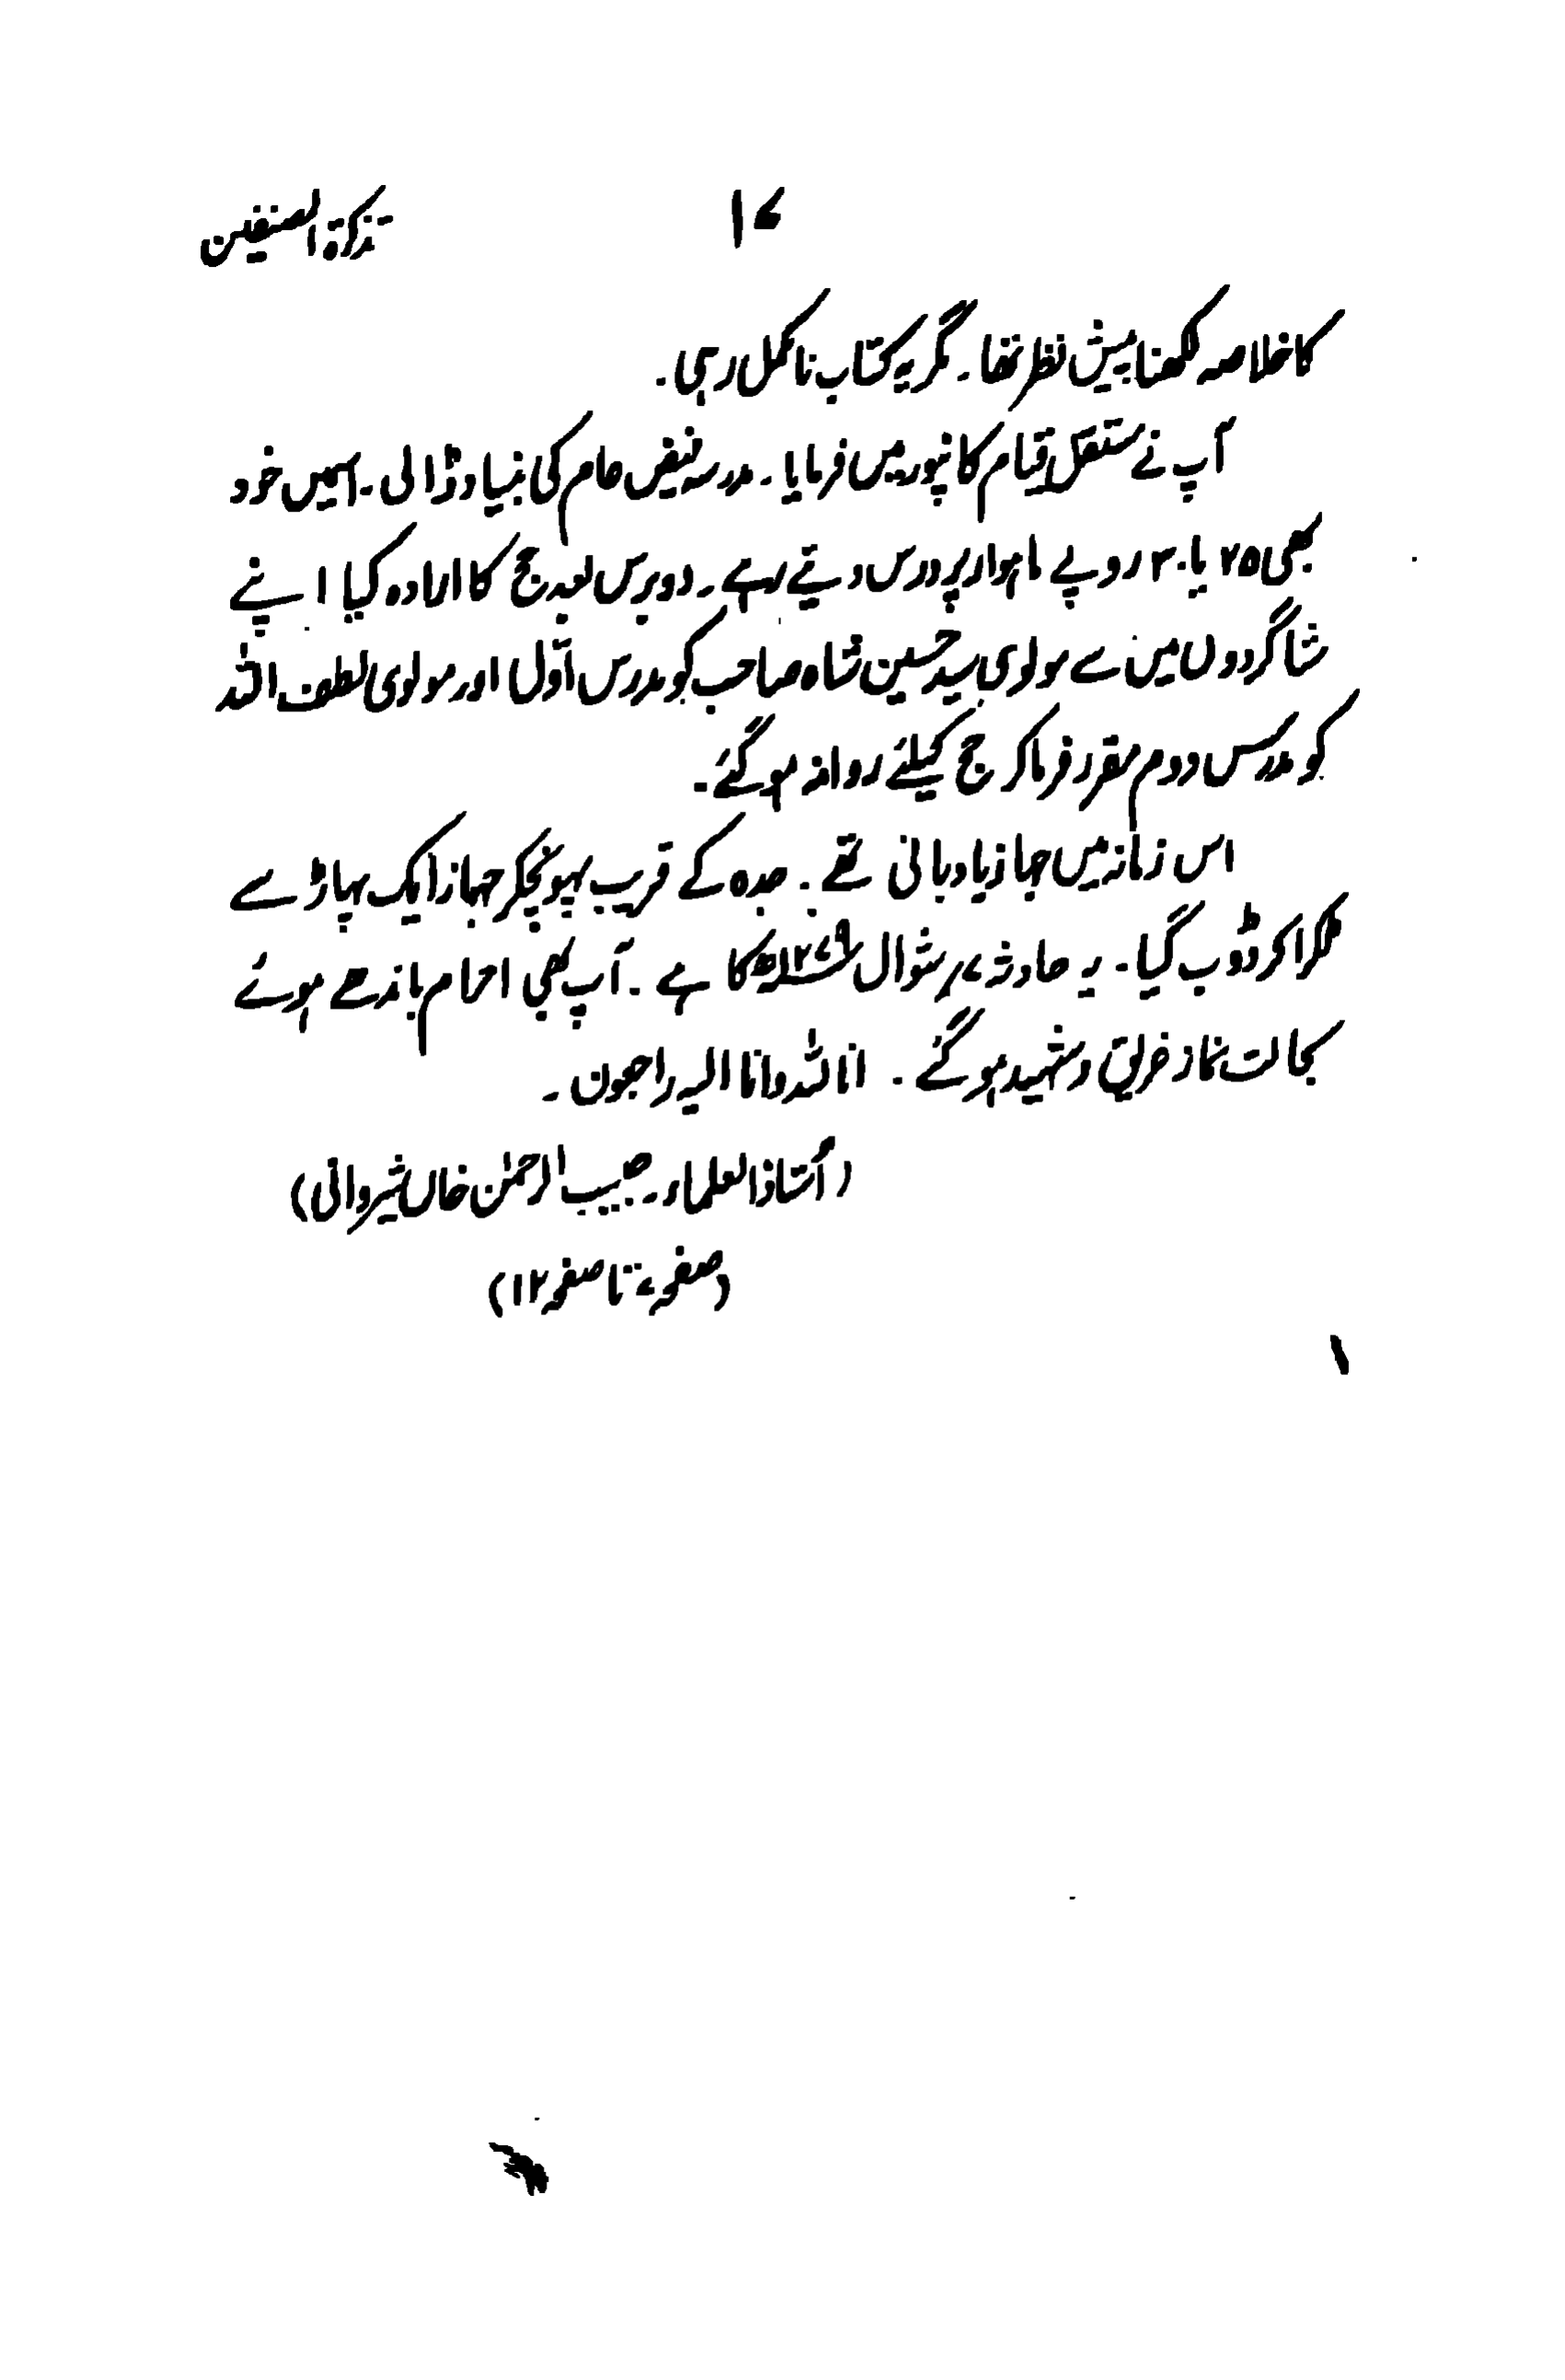 تذکرۃ المصنفین
۱۷
کا خلاصہ لکھنا پیش نظر تھا۔ مگر یہ کتاب نامکمل رہی۔
آپ نے مستقل قیام کانپور میں فرمایا۔ مدرسہ فیض عام کی بنیاد ڈالی۔ اسمیں خود
بھی ۲۵ یا ۳۰ روپے ماہوار پر درس دیتے رہے۔ دو برس بعد حج کا ارادہ کیا اپنے
شاگردوں میں سے مولوی سید حسین شاہ صاحب کو مدرس اوّل اور مولوی لطف اللہ
کو مدرس دوم مقرر فرما کر حج کیلئے روانہ ہوگئے۔
اس زمانہ میں جہاز بادبانی تھے۔ جدہ کے قریب پہونچکر جہاز ایک پہاڑ سے
ٹکرا کر ڈوب گیا۔ یہ حادثہ ۷؍ شوال ۱۲۷۹ھ کا ہے۔ آپ بھی احرام باندھے ہوئے
بحالت نماز غریق و شہید ہو گئے۔ انا للہ وانا الیہ راجعون۔
(اُستاذ العلماء۔ حبیب الرحمٰن خاں شیروانی)
(صفحہ ۷ تا صفحہ ۱۲)